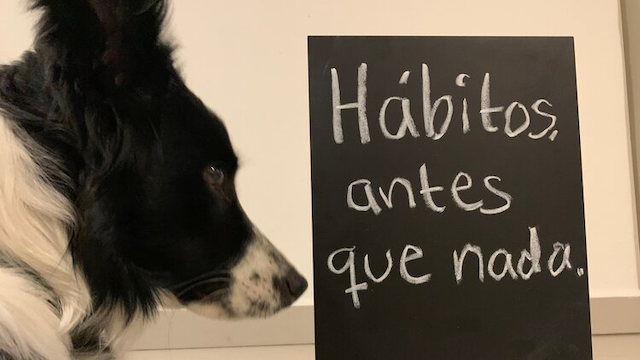 Hábitos,
antes
que nada.